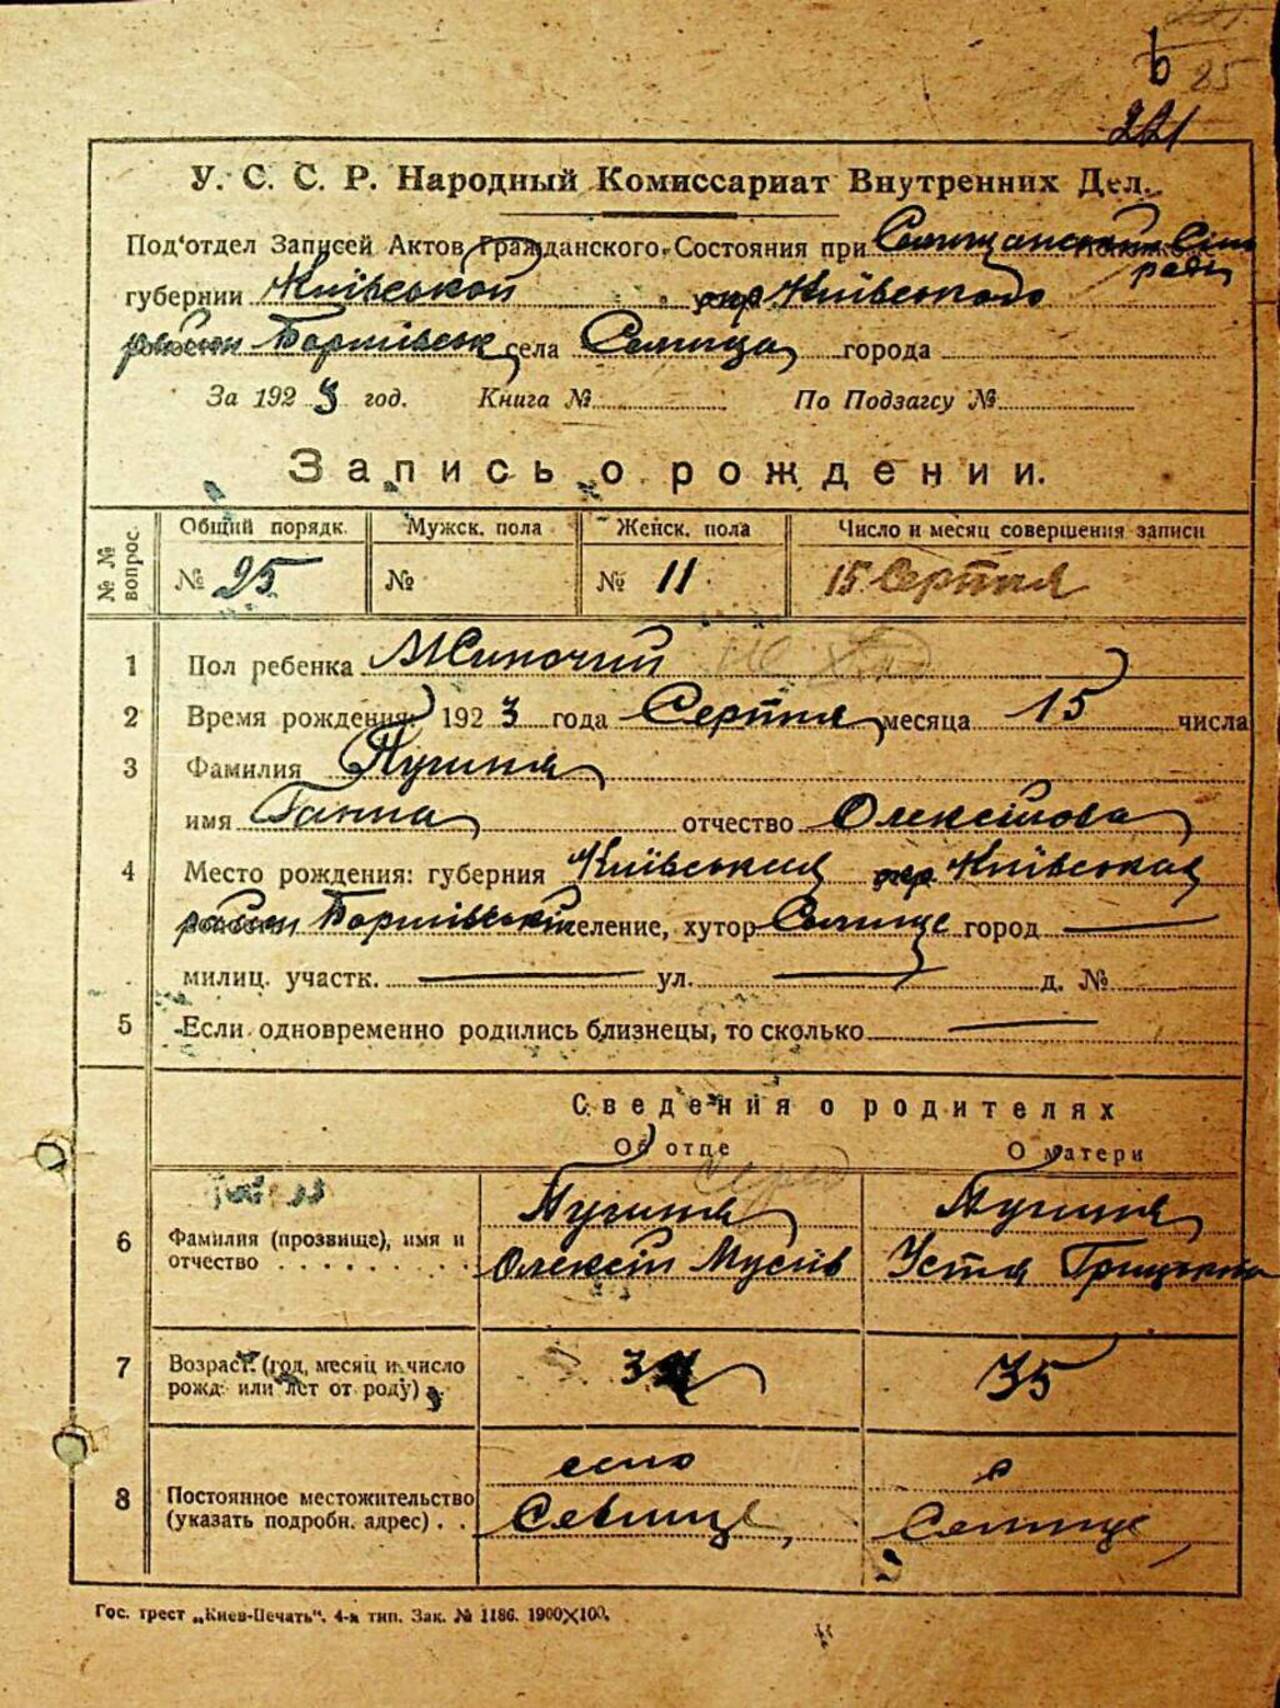 221
У. С. С. Р. Народный Комиссариат Внутренних Дел.
Под'отдел Записей Актов Гражданского Состояния при Селищанській Сіль
раді
губернии Київської окр Київського
района Баришівськ села Селища города
За 1923 год. Книга № По Подзагсу №
Запись о рождении.
№ № вопрос. Общий порядк. Мужск. пола Женск. пола Число и месяц совершения записи
№ 25 № № 11 15 Серпня
1 Пол ребенка Жиночий
2 Время рождения: 1923 года Серпня месяца 15 числа
3 Фамилия
имя Ганна отчество Олексіїова
4 Место рождения: губерния Київська окр Київская
район селение, хутор Селище город —
милиц. участк. — ул. — д. №
5 Если одновременно родились близнецы, то сколько —
Сведения о родителях
Об отце О матери
6 Фамилия (прозвище), имя и
отчество . . . . . . . . . Олексій Мусіїв Устя
7 Возраст (год, месяц и число
рожд. или лет от роду) 35
8 село
Постоянное местожительство
(указать подробн. адрес) . . Селище, Селище
Гос. трест „Киев-Печать“. 4-я тип. Зак. № 1186. 1900×100.